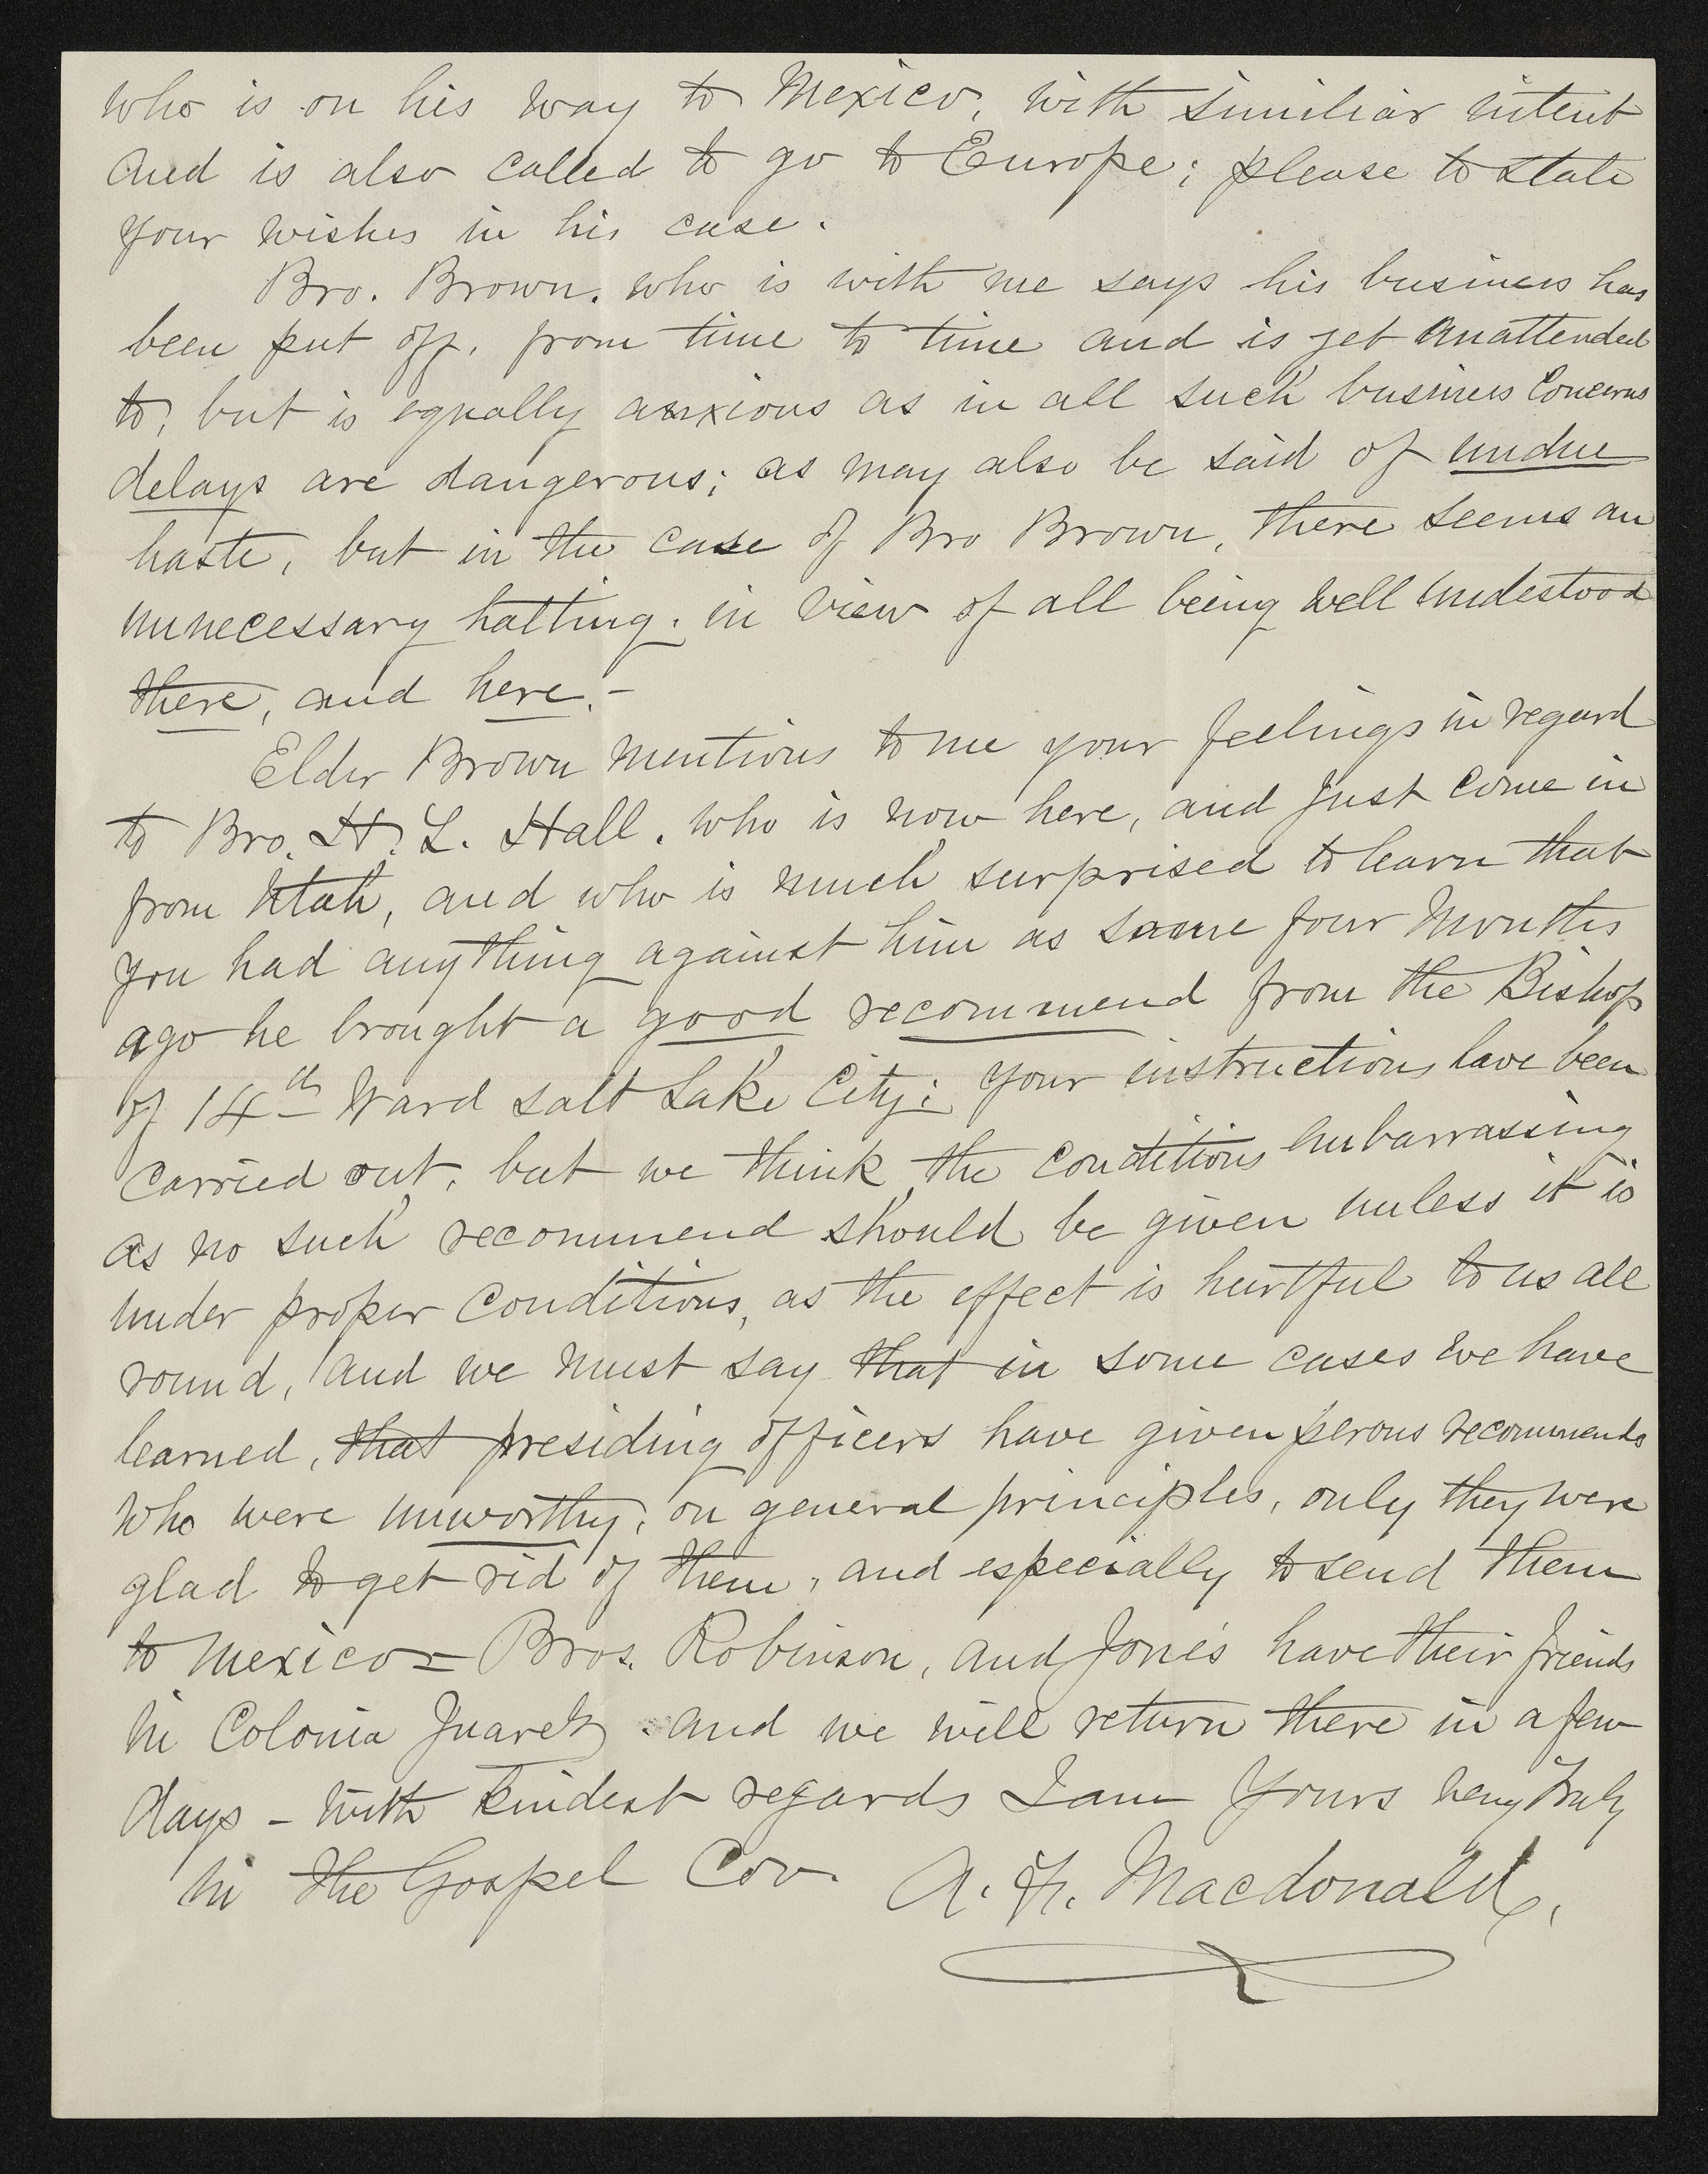 who is on his way to Mexico, with similiar intent
and is also called to go to Europe; please to state
your wishes in his case.
Bro. Brown. who is with me says his business has
been put off, from time to time and is yet unattended
to, but is equally anxious as in all such business concerns
delays are dangerous; as may also be said of undue
haste, but in the case of Bro Brown, there seems an
unnecessary halting. in view of all being well undestood
there, and here.-
Elder Brown mentions to me your feelings in regard
to Bro. H. L. Hall. who is now here, and just come in
from Utah, and who is much surprised to learn that
you had anything against him as some four months
ago he brought a good recommend from the Bishop
of 14th Ward Salt Lake City; your instructions have been
carried out, but we think the conditions embarrassing
as no such recommend should be given unless it is
under proper conditions, as the effect is hurtful to us all
round, and we must say that in some cases we have
learned, that presiding officers have given persons recommends
who were unworthy, on general principles, only they were
glad to get rid of them, and especially to send them
to Mexico= Bros. Robinson, and Jones have their friends
in Colonia Juarez. and we will return there in a few
days - with kindest regards I am Yours very truly
in the Gospel Cov. A. F. Macdonald,